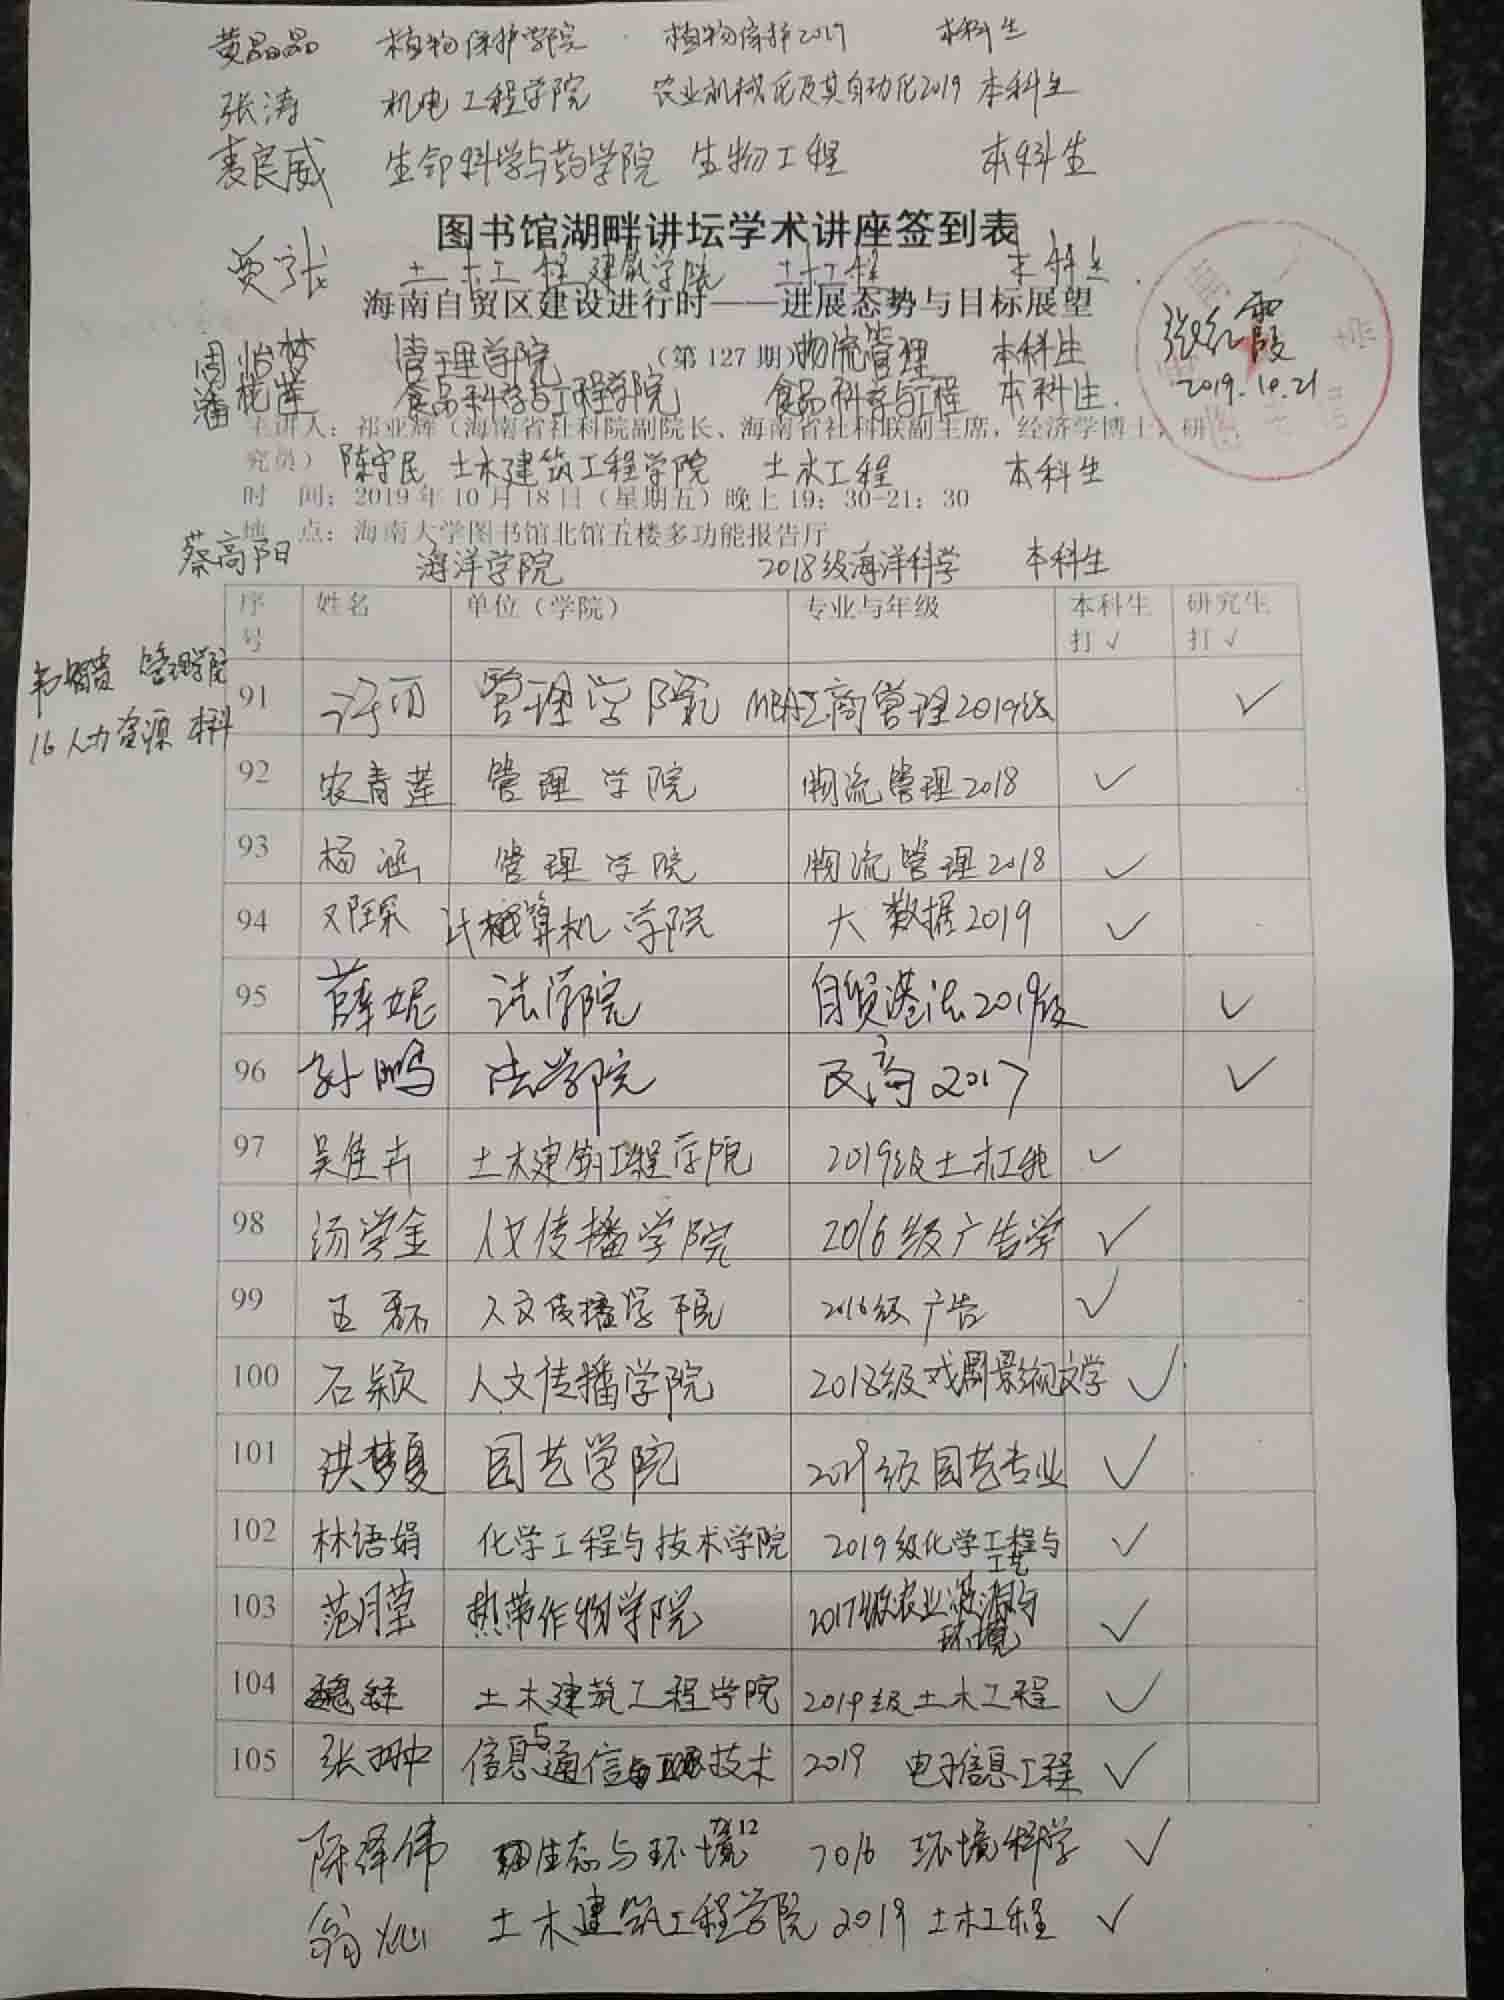 黄晶晶 植物保护学院 植物保护2019 本科生
张涛 机电工程学院 农业机械化及其自动化2019 本科生
袁良威 生命科学与药学院 生物工程 本科生
图书馆湖畔讲坛学术讲座签到表
贾张 土木工程建筑学院 土木工程 本科生
海南自贸区建设进行时——进展态势与目标展望
张红霞
2019.10.21
周怡梦 管理学院 (第127期) 物流管理 本科生
潘 莲 食品科学与工程学院 食品科学与工程 本科生
主讲人：祁亚辉（海南省社科院副院长、海南省社科联副主席，经济学博士，研
究员）
陈守民 土木建筑工程学院 土木工程 本科生
时 间：2019年10月18日（星期五）晚上19：30-21：30
地 点：海南大学图书馆北馆五楼多功能报告厅
蔡高阳 海洋学院 2018级海洋科学 本科生
序号 姓名 单位（学院） 专业与年级 本科生打√ 研究生打√
韦 贵 管理学院
16人力资源 本科
91 管理学院 MBA工商管理2019级 √
92 农青莲 管理学院 物流管理2018 √
93 杨涵 管理学院 物流管理2018 √
94 邓琛 计算机学院 大数据2019 √
95 薛妮 法学院 自贸港法2019级 √
96 孙鹏 法学院 民商2017 √
97 吴佳卉 土木建筑工程学院 2019级土木工程 √
98 汤学金 人文传播学院 2016级广告学 √
99 王磊 人文传播学院 2016级广告 √
100 石颖 人文传播学院 2018级戏剧影视文学 √
101 洪梦夏 园艺学院 2019级园艺专业 √
102 林语娟 化学工程与技术学院 2019级化学工程与工艺 √
103 范月莹 热带作物学院 2017级农业资源与环境 √
104 魏 土木建筑工程学院 2019级土木工程 √
105 张翀 信息与通信 技术 2019 电子信息工程 √
12
陈泽伟 生态与环境 2016 环境科学 √
翁灿 土木建筑工程学院 2019 土木工程 √